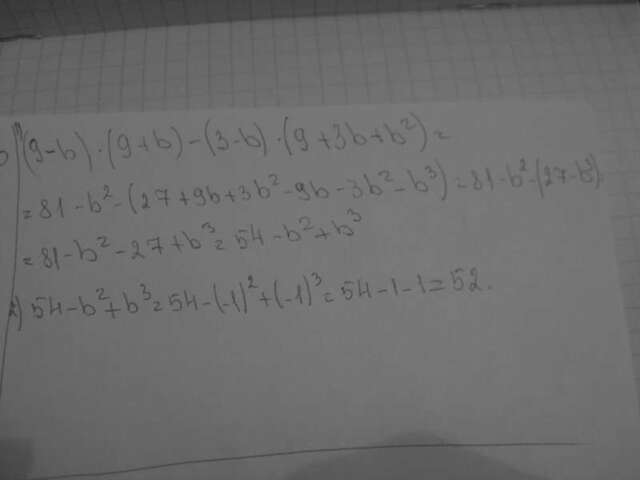 1) (9-b)·(9+b)-(3-b)·(9+3b+b²)=
=81-b²-(27+9b+3b²-9b-3b²-b³)=81-b²-(27-b³)
=81-b²-27+b³=54-b²+b³
2) 54-b²+b³=54-(-1)²+(-1)³=54-1-1=52.